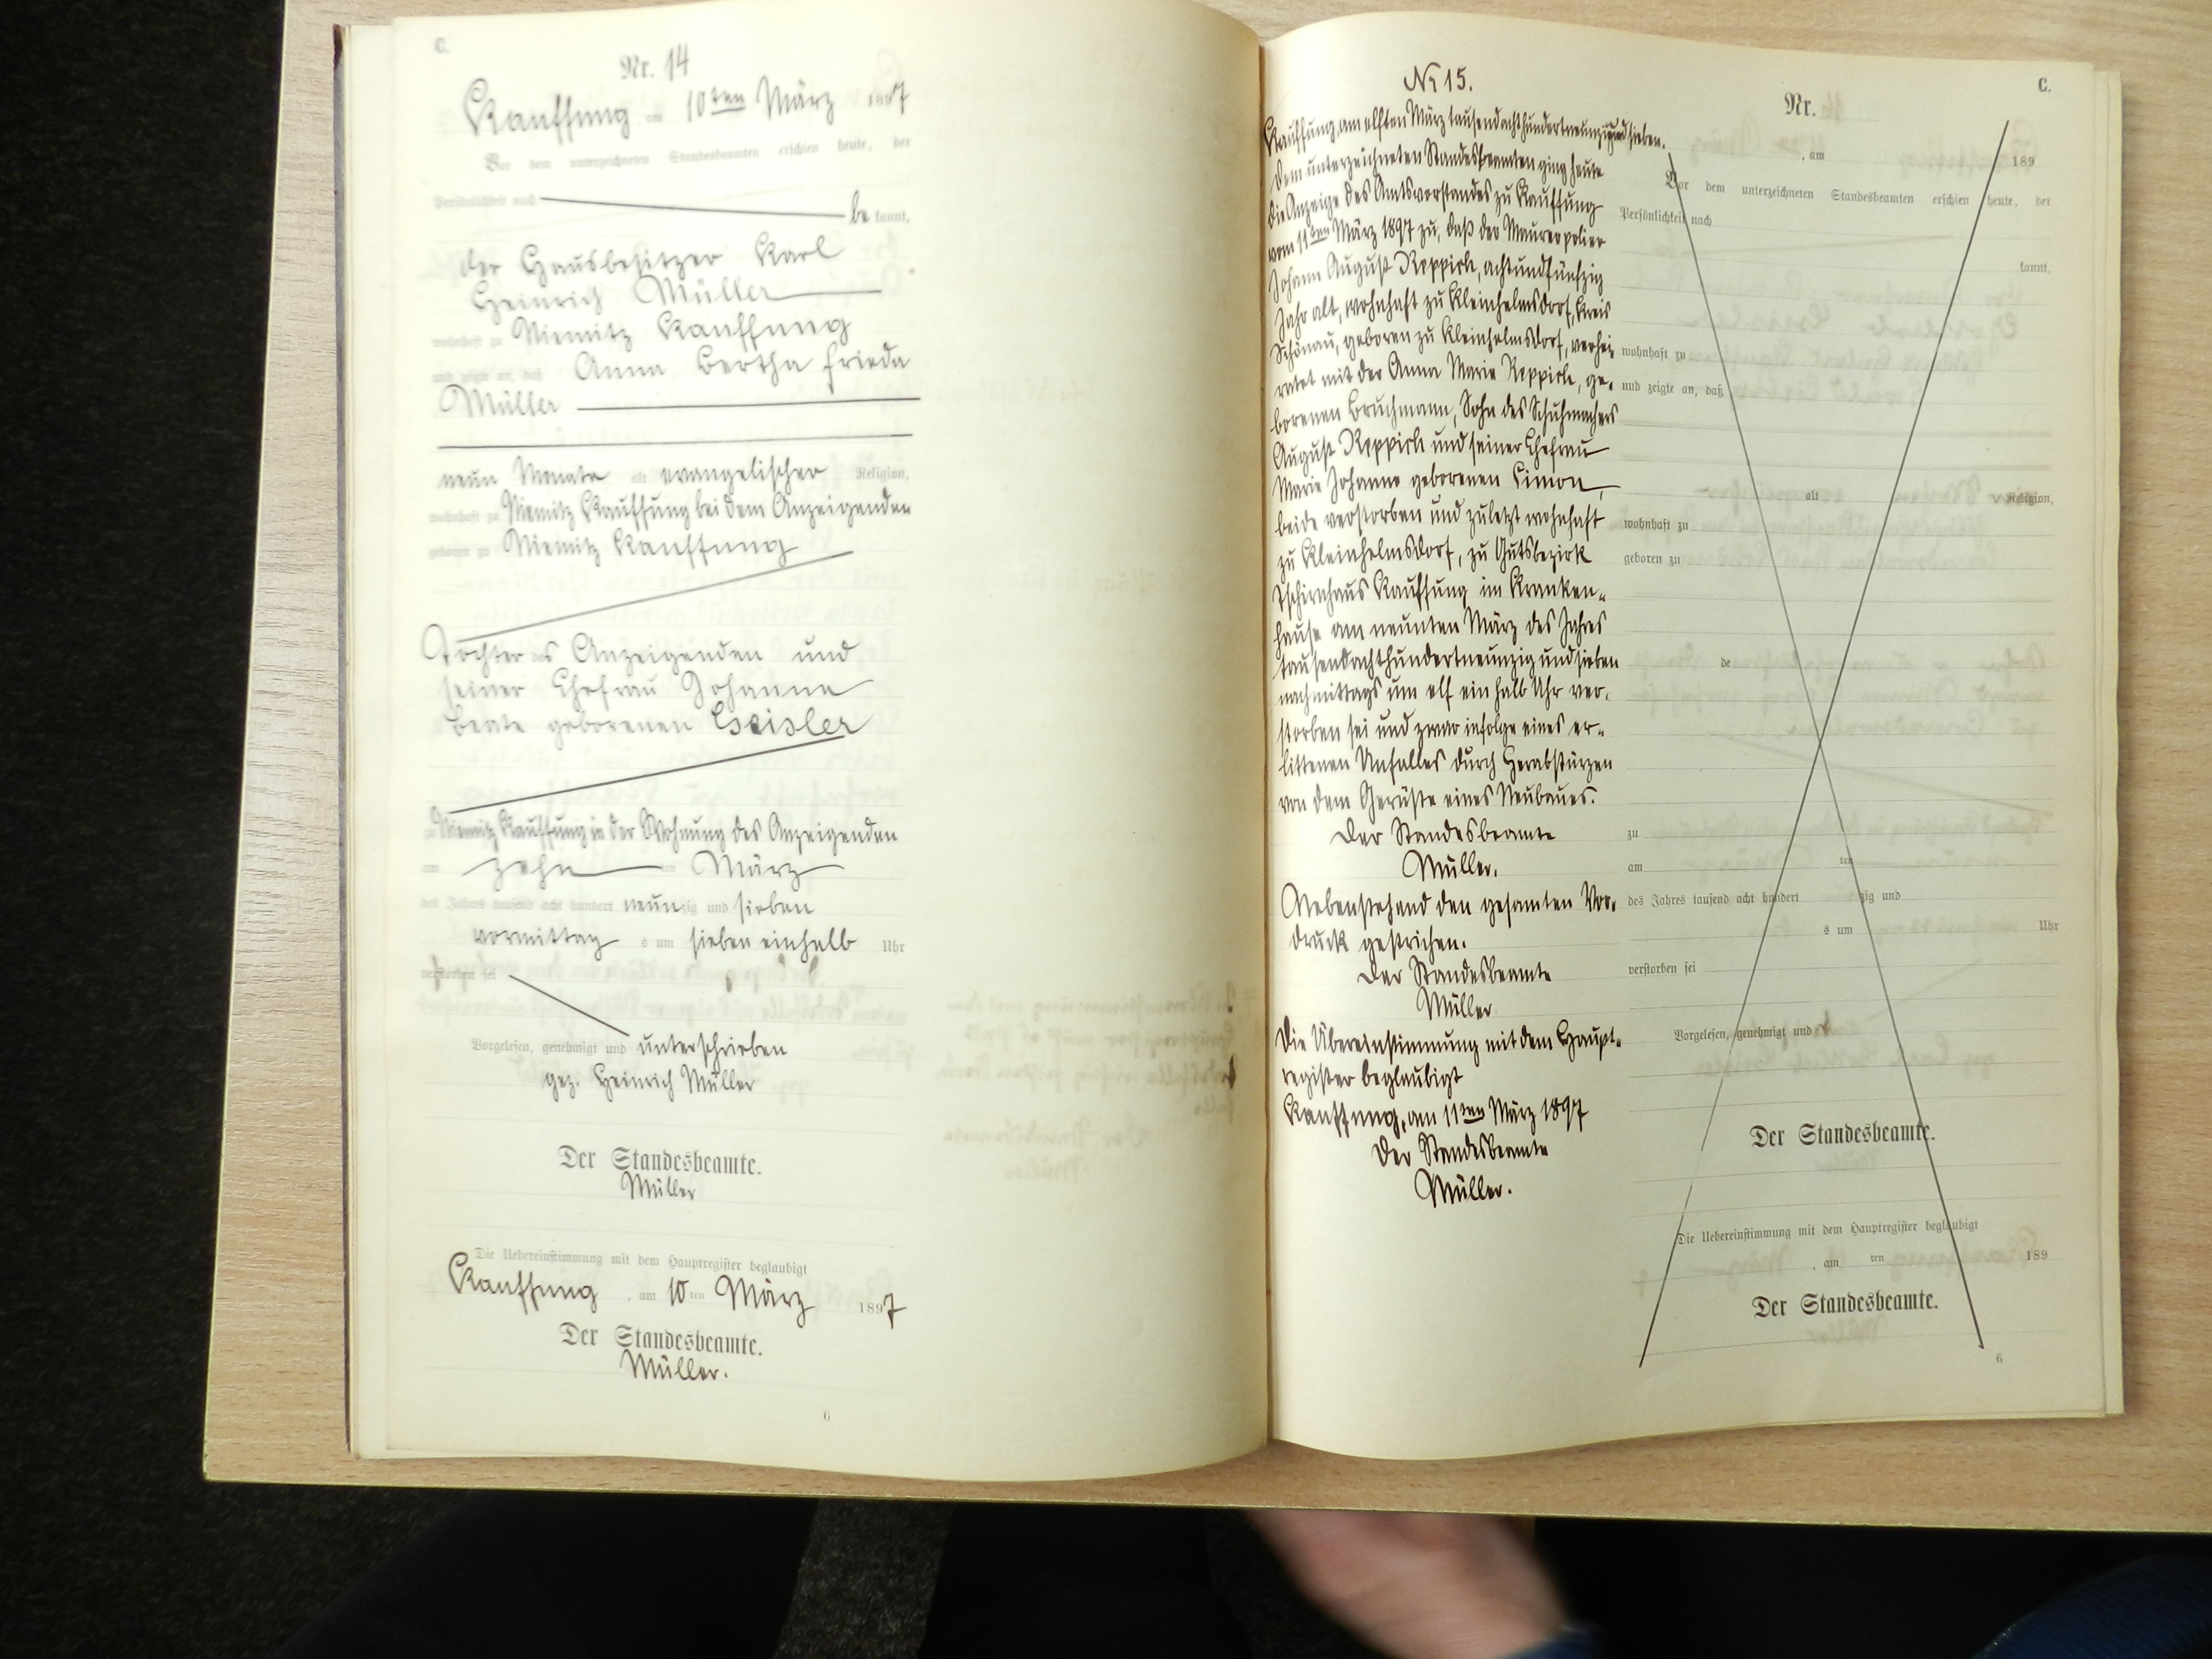 C.
Nr. 14
Kauffung am 10ten März 1897
Vor dem unterzeichneten Standesbeamten erschien heute, der
Persönlichkeit nach
bekannt,
der Hausbesitzer Karl
Heinrich Müller
wohnhaft zu Niemitz Kauffung
und zeigte an, daß Anna Bertha Frieda
Müller
neun Monate alt evangelischer Religion,
wohnhaft zu Niemitz Kauffung bei dem Anzeigenden
geboren zu Niemitz Kauffung
Tochter des Anzeigenden und
seiner Ehefrau Johanne
Beate geborenen Geisler
zu Niemitz Kauffung in der Wohnung des Anzeigenden
am zehn ten März
des Jahres tausend acht hundert neunzig und sieben
vormittags um sieben einhalb Uhr
verstorben sei
Vorgelesen, genehmigt und unterschrieben
gez. Heinrich Müller
Der Standesbeamte.
Müller
Die Uebereinstimmung mit dem Hauptregister beglaubigt
Kauffung, am 10ten März 1897
Der Standesbeamte.
Müller.
6
Nr 15.
Kauffung, am elften März tausendachthundertneunzigundsieben.
Dem unterzeichneten Standesbeamten ging heute
die Anzeige des Amtsvorstandes zu Kauffung
vom 11ten März 1897 zu, daß der Maurerpolier
Johann August Reppich, achtundfünfzig
Jahr alt, wohnhaft zu Kleinhelmsdorf, Kreis
Schönau, geboren zu Kleinhelmsdorf, verhei-
ratet mit der Anna Marie Reppich, ge-
borenen Bruchmann, Sohn des Schuhmachers
August Reppich und seiner Ehefrau
Marie Johanne geborenen Simon,
beide verstorben und zuletzt wohnhaft
zu Kleinhelmsdorf, zu Gutsbezirk
Tschirnhaus Kauffung im Kranken-
hause am neunten März des Jahres
tausendachthundertneunzig und sieben
nachmittags um elf ein halb Uhr ver-
storben sei und zwar infolge eines er-
littenen Unfalles durch Herabstürzen
von dem Gerüste eines Neubaues.
Der Standesbeamte
Müller.
Nebenstehend den gesamten Vor-
druck gestrichen.
Der Standesbeamte
Müller
Die Übereinstimmung mit dem Haupt-
register beglaubigt
Kauffung, am 11ten März 1897
Der Standesbeamte
Müller.
C.
Nr.
, am 189
Vor dem unterzeichneten Standesbeamten erschien heute, der
Persönlichkeit nach
kannt,
wohnhaft zu
und zeigte an, daß
alt Religion,
wohnhaft zu
geboren zu
de
zu
am ten
des Jahres tausend acht hundert zig und
s um Uhr
verstorben sei
Vorgelesen, genehmigt und
Der Standesbeamte.
Die Uebereinstimmung mit dem Hauptregister beglaubigt
, am ten 189
Der Standesbeamte.
6